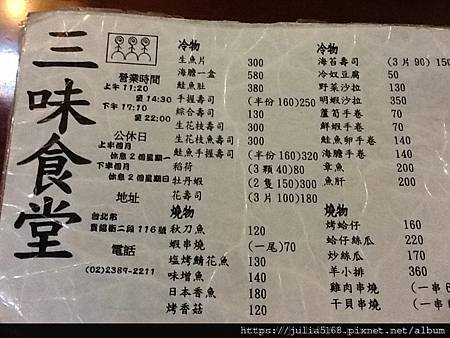 三味食堂
營業時間
上午 11:20
至 14:30
下午 17:10
至 22:00
公休日
上半個月
休息 2 個星期一
下半個月
休息 2 個星期日
地址
台北市
貴陽街二段 116 號
電話
(02)2389-2211
冷物
生魚片 300
海膽一盒 580
鮭魚肚 380
手握壽司 (半份 160)250
綜合壽司 130
生花枝壽司 300
生花枝魚壽司 300
鮭魚手握壽司 (半份 160)320
稻荷 (3 顆 40)80
牡丹蝦 (2 隻 150)300
花壽司 (3 片 100)180
燒物
秋刀魚 120
蝦串燒 (一尾)70
塩烤鯖花魚 130
味增魚 140
日本香魚 180
烤香菇 120
冷物
海苔壽司 (3 片 90) 150
冷奴豆腐 50
野菜沙拉 130
明蝦沙拉 350
蘆筍手卷 70
鮮蝦手卷 70
鮭魚卵手卷 140
海膽手卷 140
章魚 200
魚肝 200
燒物
烤蛤仔 160
蛤仔絲瓜 220
炒絲瓜 170
羊小排 360
雞肉串燒 (一串
干貝串燒 (一串
https://julia5168.pixnet.net/album